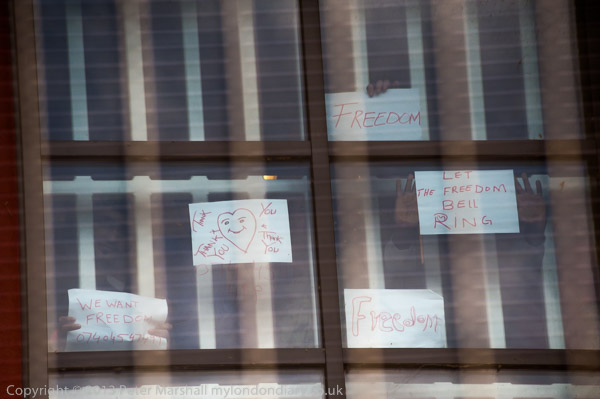 FREEDOM
LET
THE FREEDOM
BELL
RING
THANK YOU
THANK YOU
THANK YOU
WE WANT
FREEDOM
Freedom
Copyright © 2013 Peter Marshall mylondondiary.co.uk